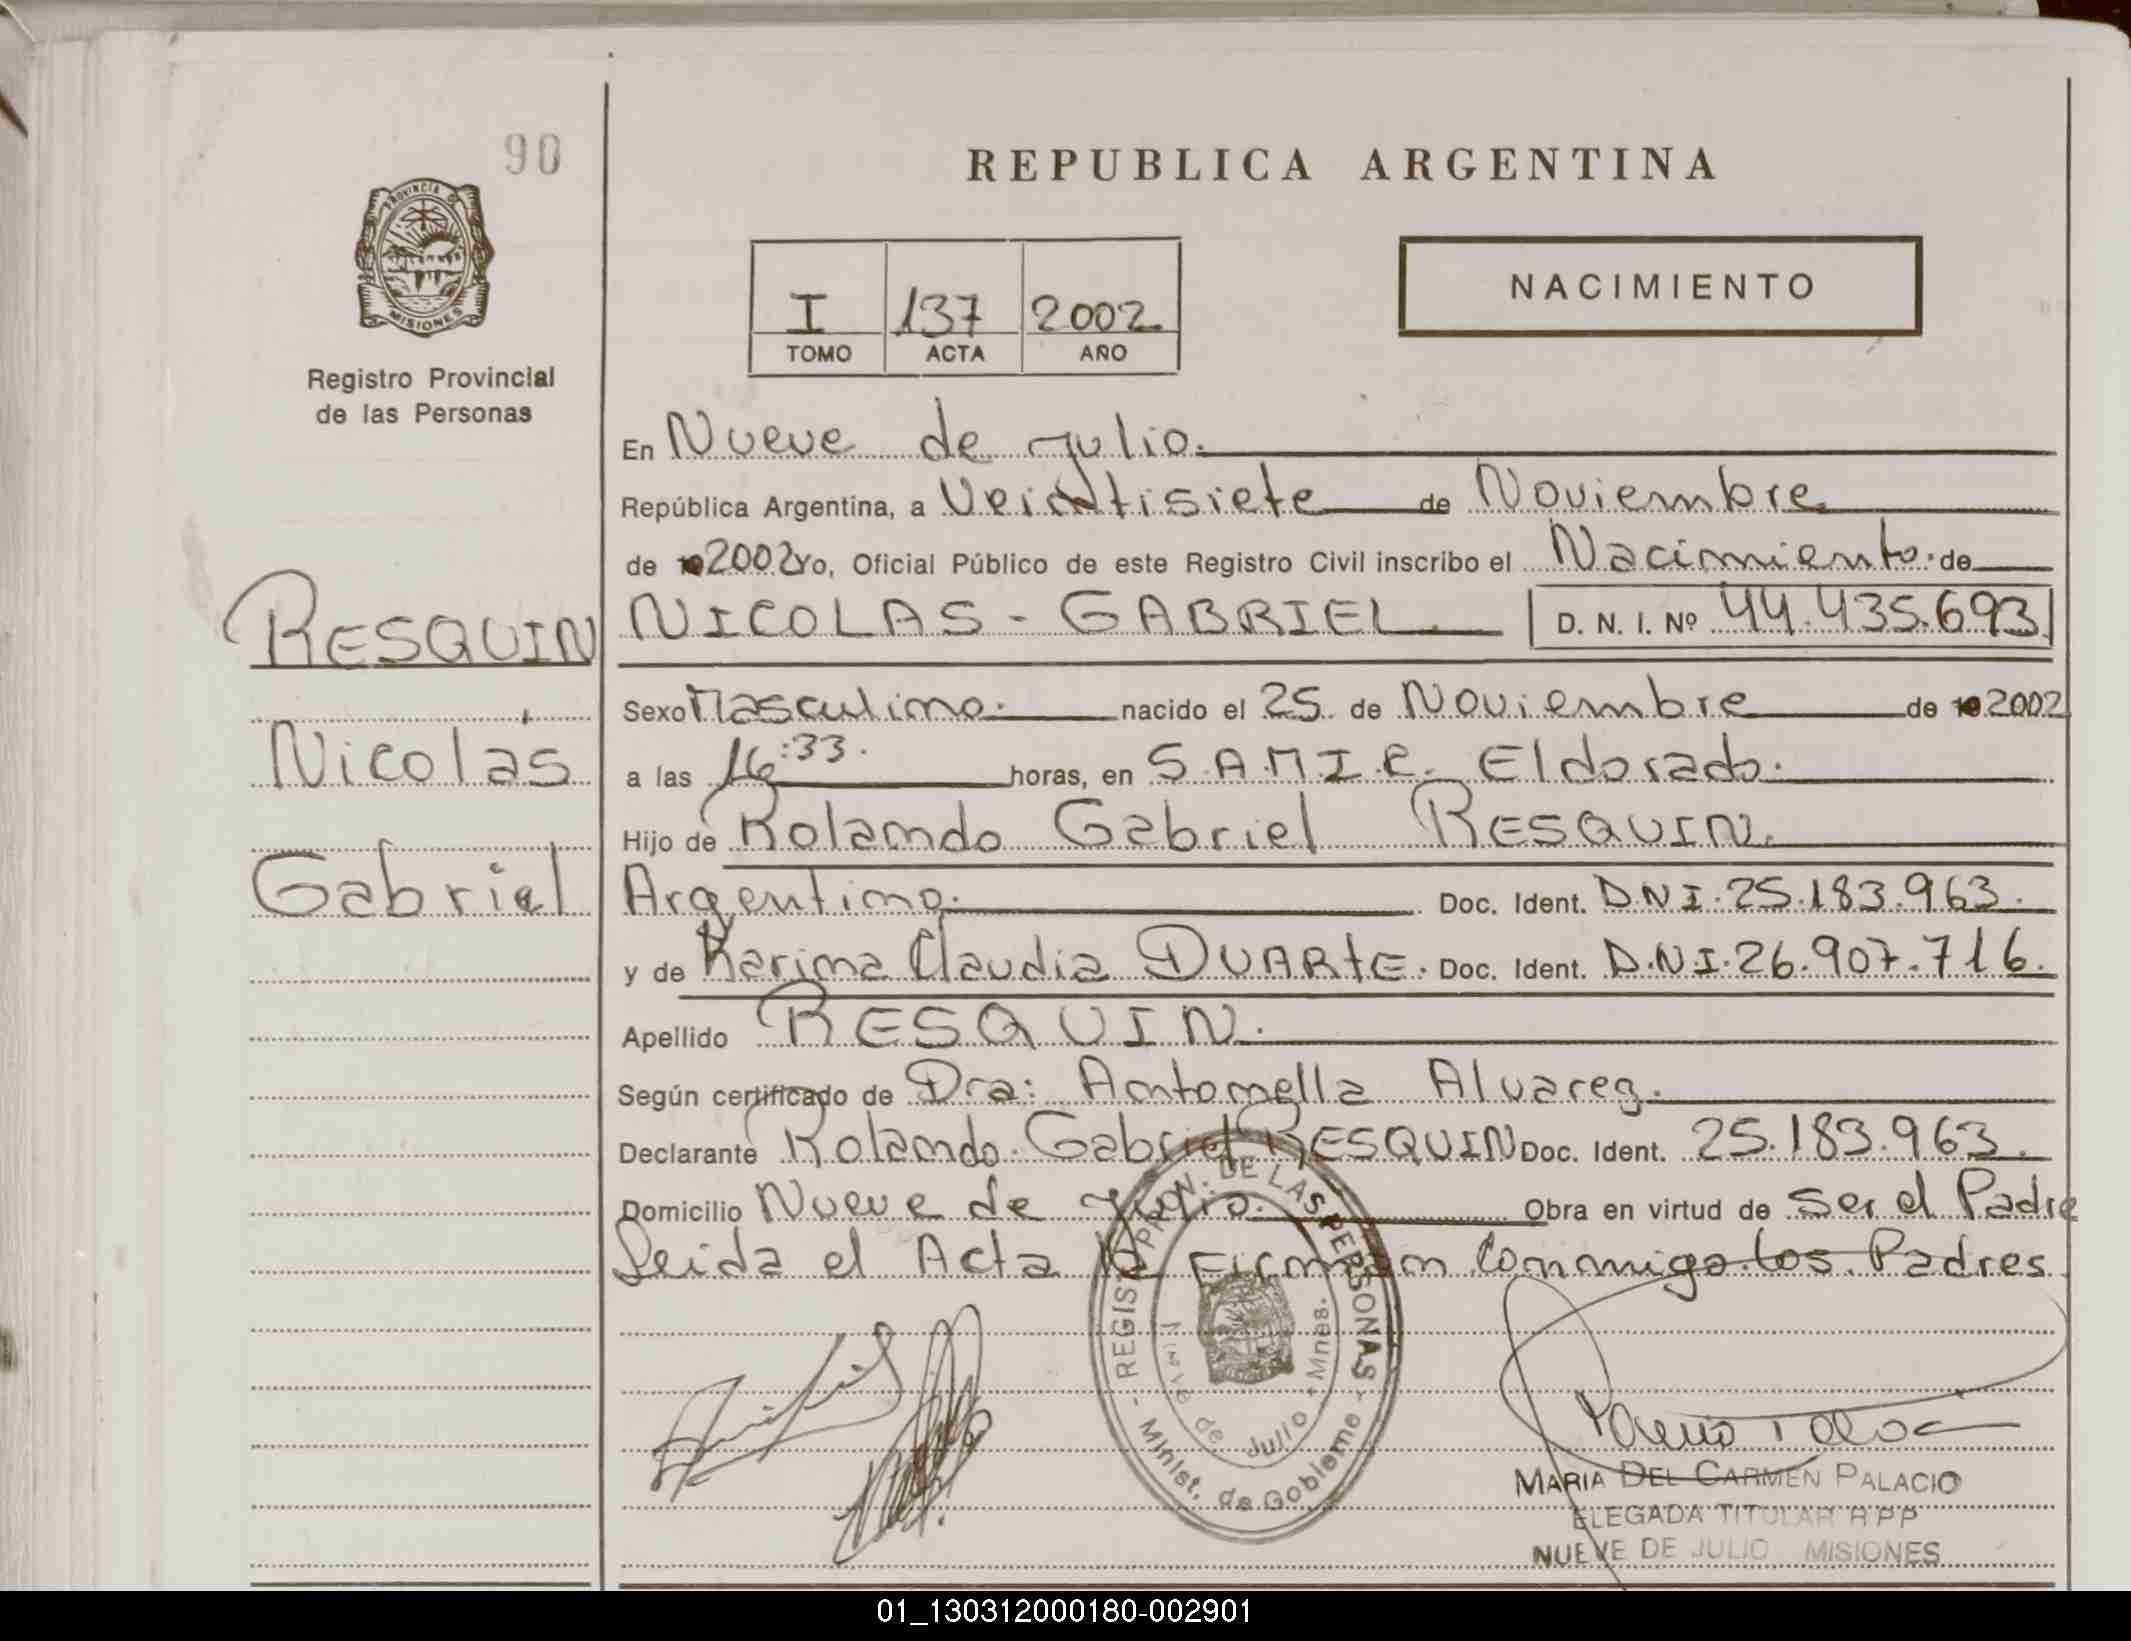 90
REPUBLICA ARGENTINA
PROVINCIA DE
MISIONES
Registro Provincial
de las Personas
NACIMIENTO
I 137 2002
TOMO ACTA AÑO
En Nueve de Julio.
República Argentina, a Veintisiete de Noviembre
de 19 2002 Yo, Oficial Público de este Registro Civil inscribo el Nacimiento de
RESQUIN
Nicolás
Gabriel
NICOLAS - GABRIEL. D. N. I. Nº 44.435.693
Sexo Masculino. nacido el 25 de Noviembre de 19 2002
a las 16:33. horas, en S.A.M.I.C. Eldorado.
Hijo de Rolando Gabriel RESQUIN.
Argentino. Doc. Ident. D.N.I. 25.183.963.
y de Karina Claudia DUARTE. Doc. Ident. D.N.I. 26.907.716.
Apellido RESQUIN.
Según certificado de Dra: Antonella Alvarez.
Declarante Rolando Gabriel RESQUIN Doc. Ident. 25.183.963.
Domicilio Nueve de Julio. Obra en virtud de Ser el Padre
Leida el Acta la Firman Conmigo los Padres.
REGIST. PROV. DE LAS PERSONAS - Minist. de Gobierno -
Nueve de Julio - Mnes.
MARIA DEL CARMEN PALACIO
DELEGADA TITULAR R P P
NUEVE DE JULIO MISIONES
01_130312000180-002901